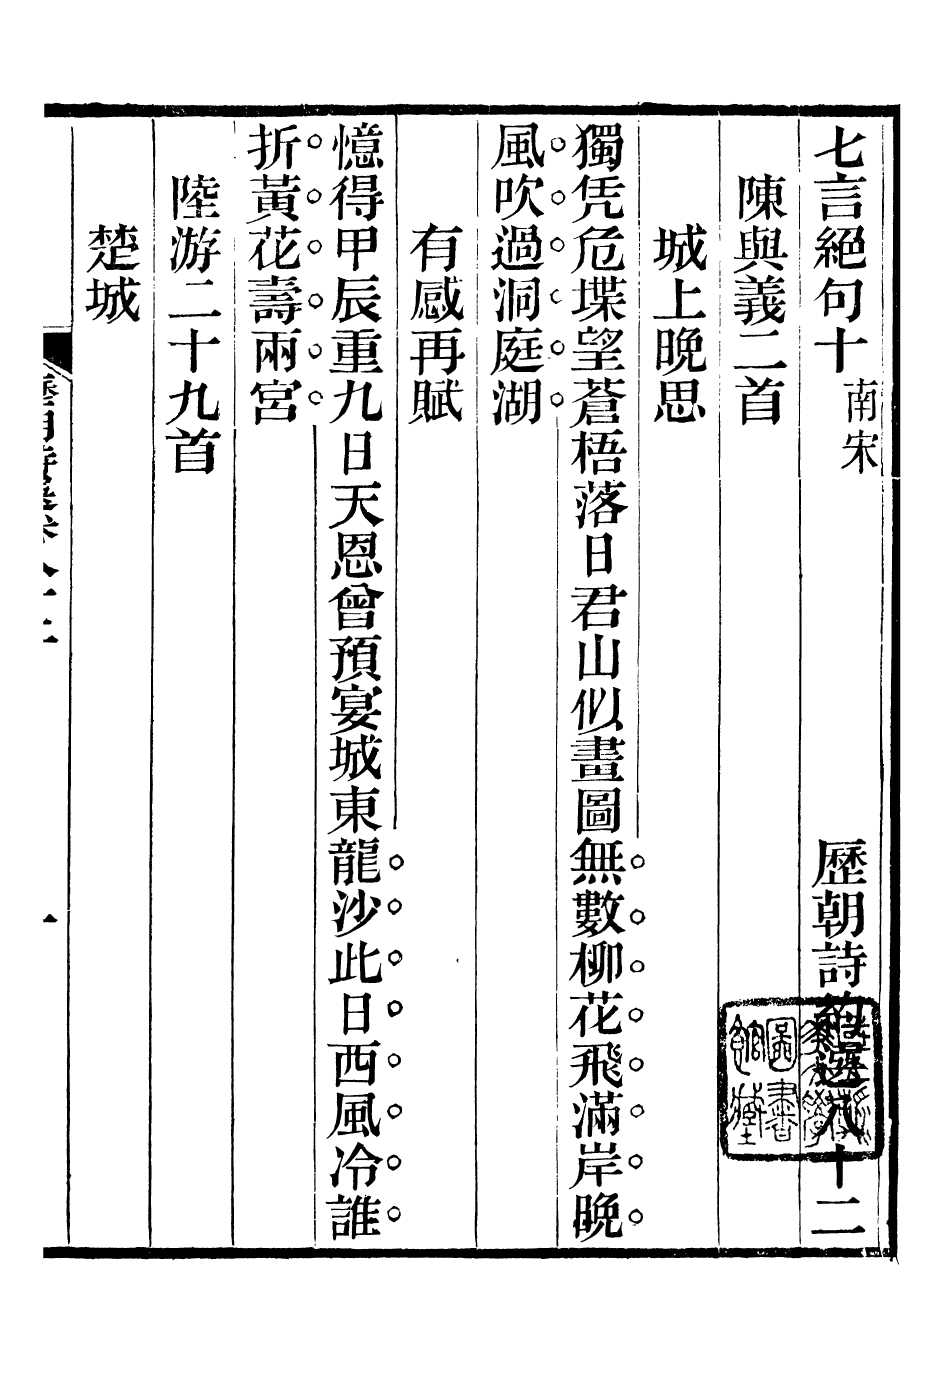 七言絕句十 南宋 歷朝詩約選八十二
陳與義二首
城上晚思
獨凭危堞望蒼梧落日君山似畫圖無數柳花飛滿岸晚
風吹過洞庭湖
有感再賦
憶得甲辰重九日天恩曾預宴城東龍沙此日西風冷誰
折黃花壽兩宮
陸游二十九首
楚城